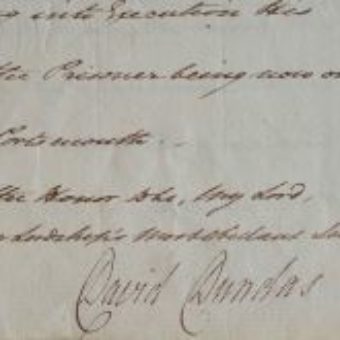 into Execution this
the Prisoner being now on
Portsmouth
the Honor to be, My Lord,
Lordship's most Obedient
David Dundas